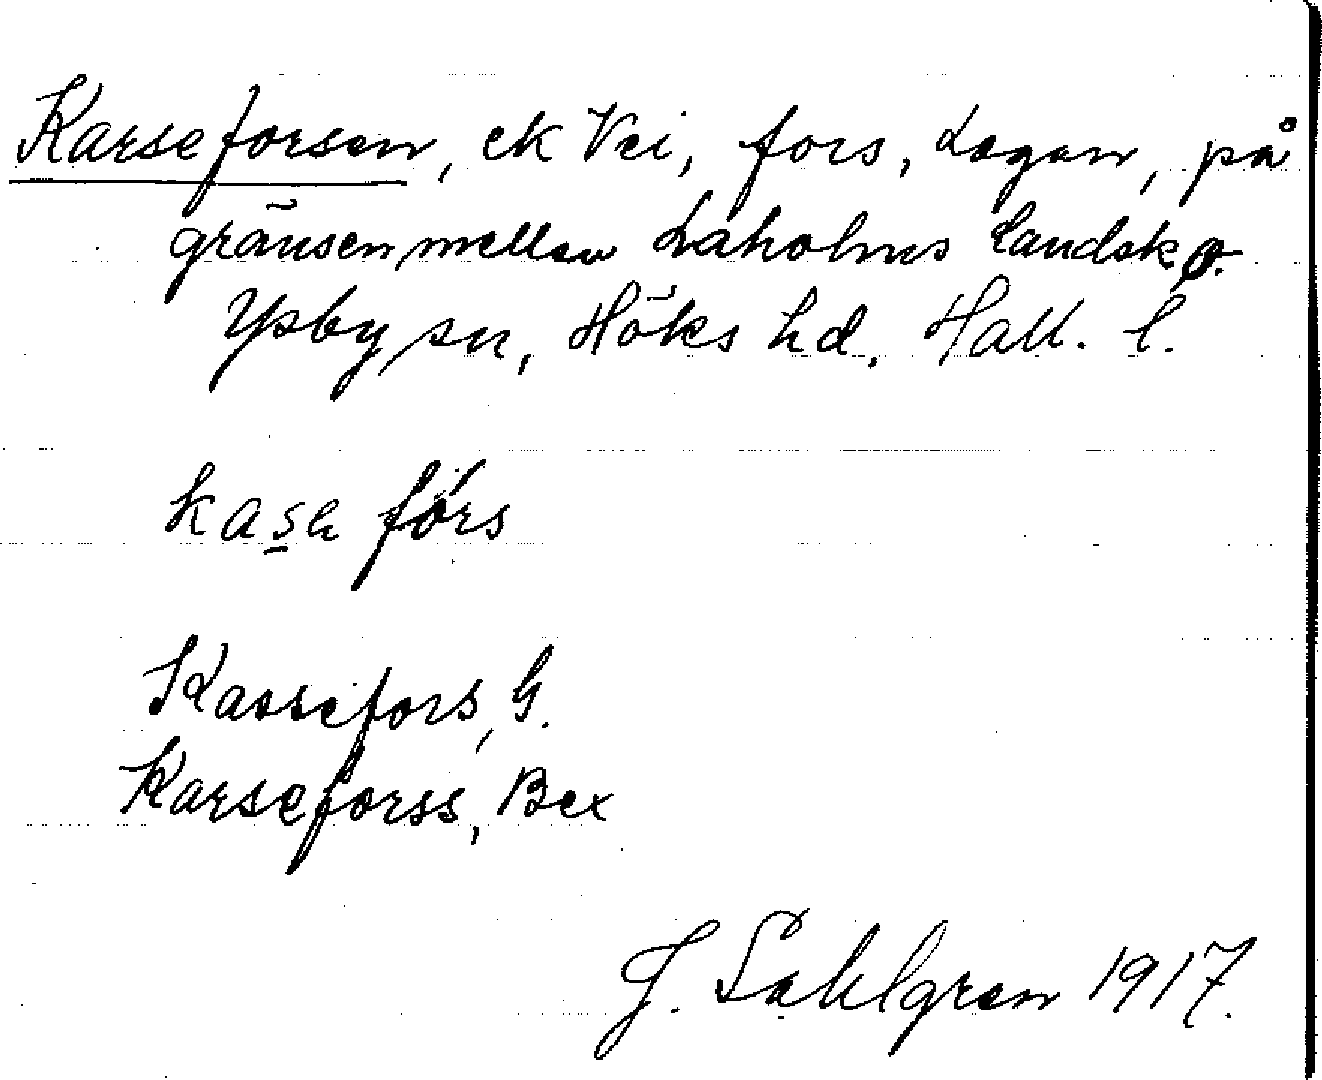 Karseforsen, ek Vei, fors, Lagan, på
gränsen mellan Laholms landsk o.
Ysby sn, Höks hd. Hall. l.
kaseförs
Kassefors, G.
Karseforss, Bex
J. Sahlgren 1917.